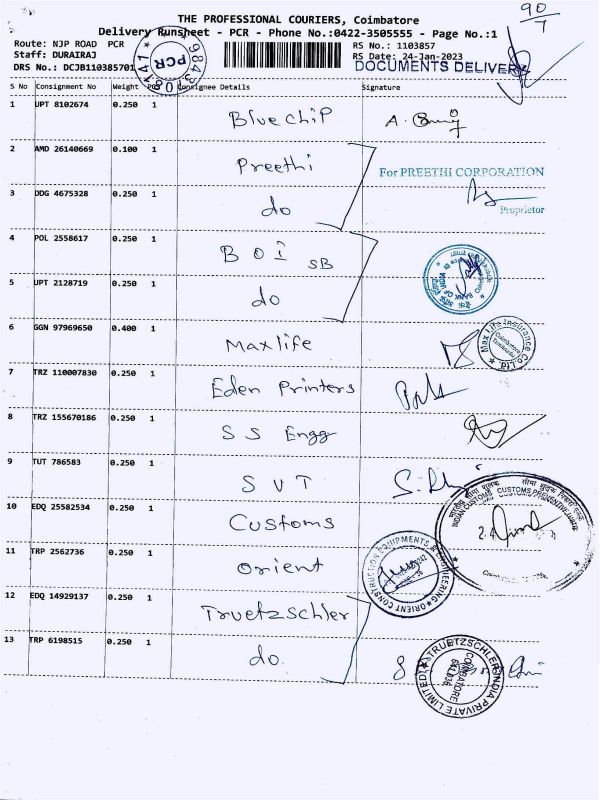 90/T
THE PROFESSIONAL COURIERS, Coimbatore
Delivery Runsheet - PCR - Phone No.:0422-3505555 - Page No.:1
Route: NJP ROAD PCR
RS No.: 1103857
Staff: DURAIRAJ
RS Date: 24-Jan-2023
DRS No.: DCJB110385701
DOCUMENTS DELIVERY
PCR
S No Consignment No Weight PCS Consignee Details Signature
1 UPT 8102674 0.250 1 Bluechip
2 AMD 26140669 0.100 1 Preethi
For PREETHI CORPORATION
3 DDG 4675328 0.250 1 do
Proprietor
4 POL 2558617 0.250 1 BOI SB
5 UPT 2128719 0.250 1 do
BANK OF INDIA
6 GGN 97969650 0.400 1 Maxlife
Max Life Insurance Co. Ltd.
7 TRZ 110007830 0.250 1 Eden Printers
8 TRZ 155670186 0.250 1 S S Engg
9 TUT 786583 0.250 1 SVT
10 EDQ 25582534 0.250 1 Customs
INDIAN CUSTOMS CUSTOMS PREVENTIVE
11 TRP 2562736 0.250 1 Orient
ORIENT CONSTRUCTION EQUIPMENTS & ENGINEERING
12 EDQ 14929137 0.250 1 Truetzschler
13 TRP 6198515 0.250 1 do
TRUETZSCHLER INDIA PRIVATE LIMITED
COIMBATORE